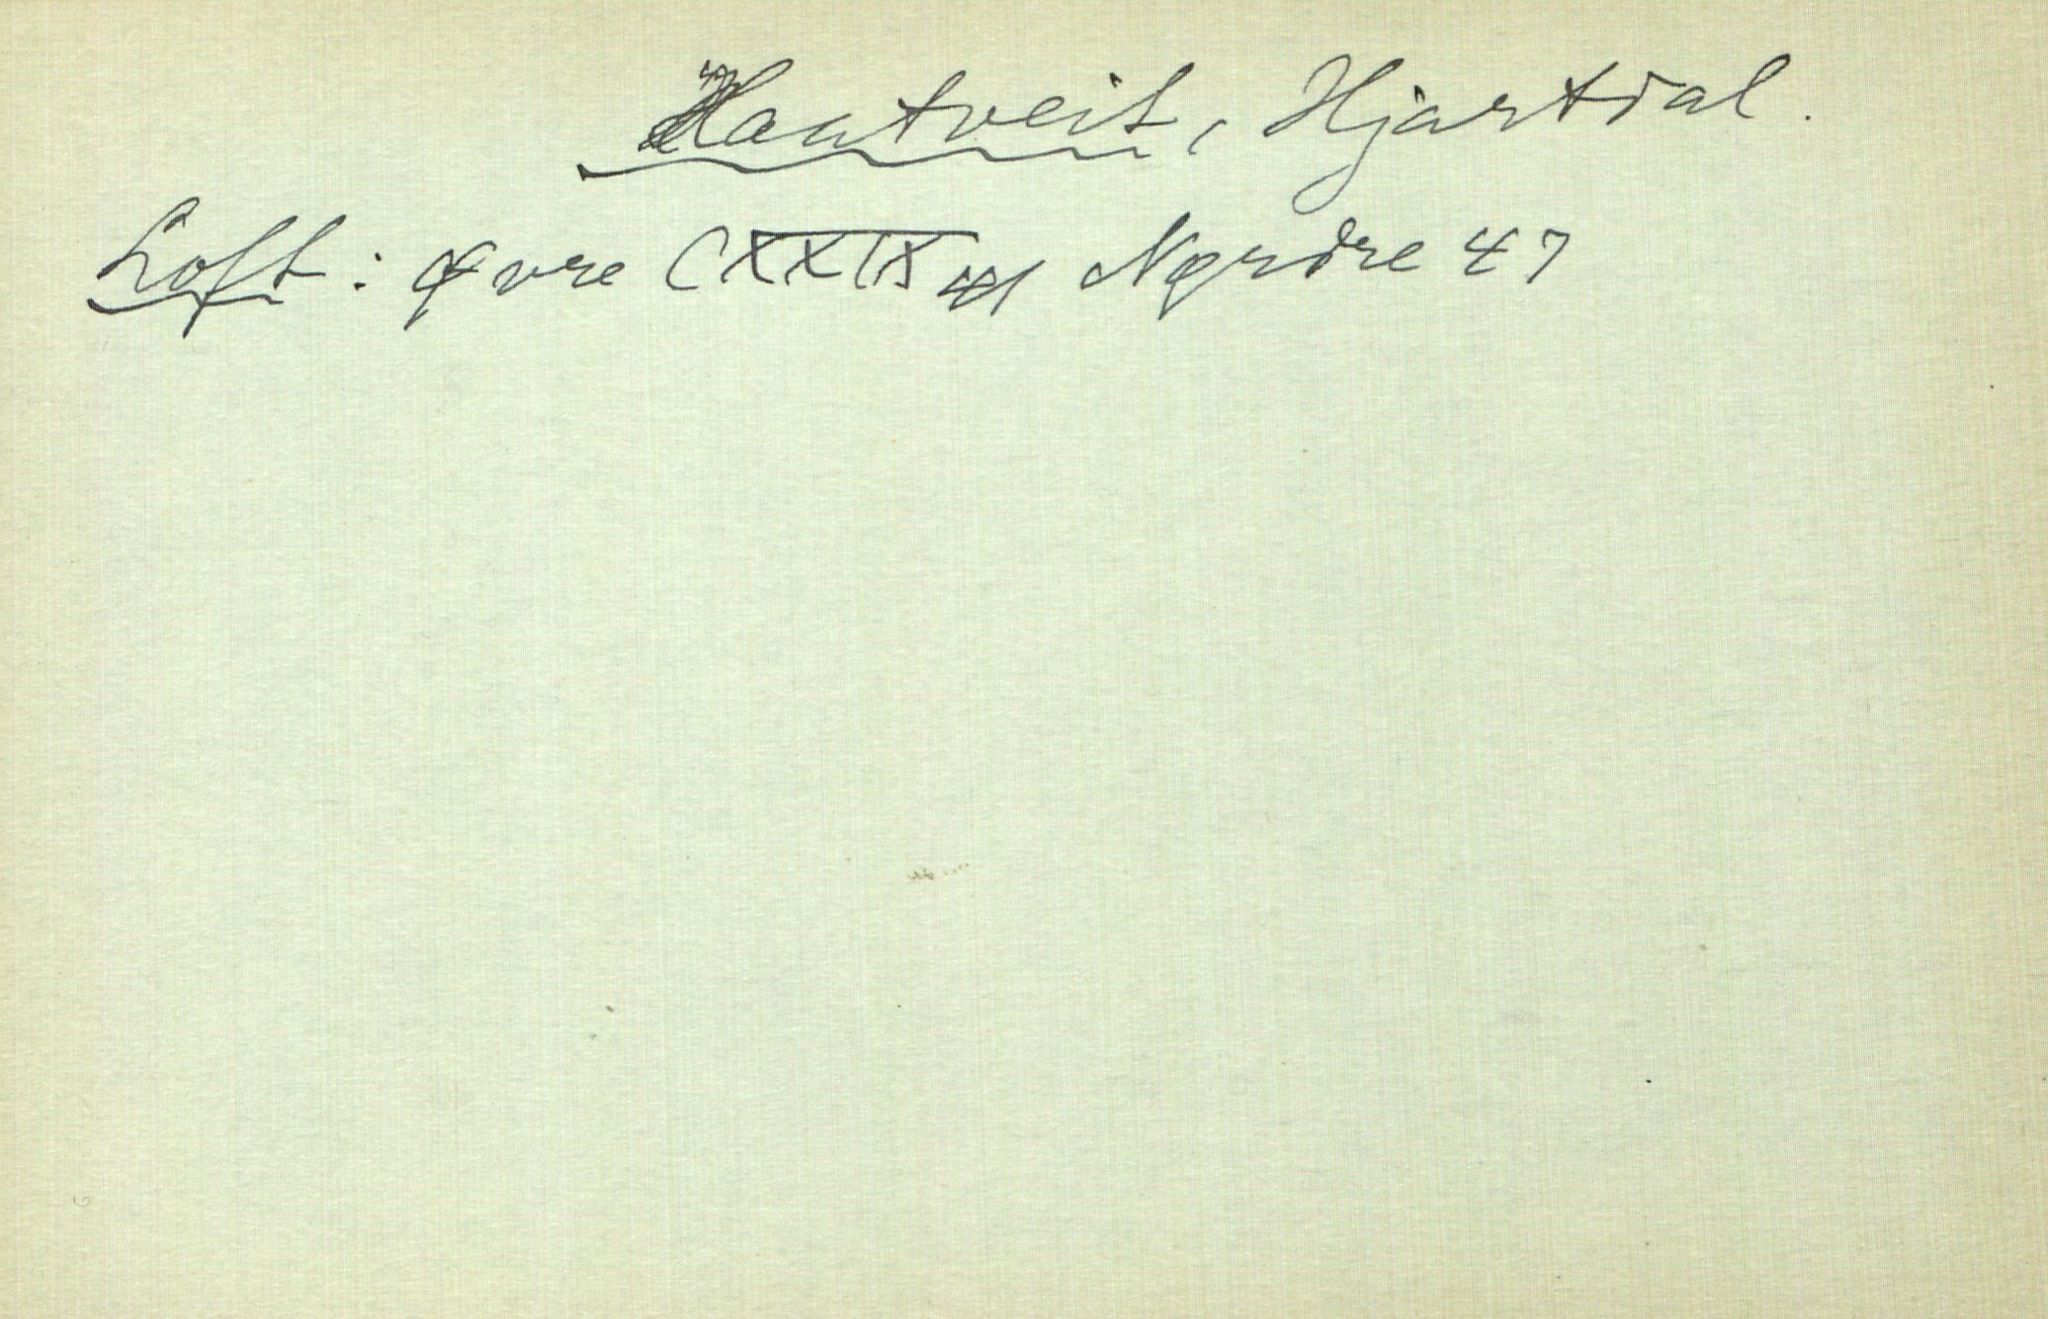 Hautveit, Hjartdal.
Loft: Øvre CXXIX Nørdre 47